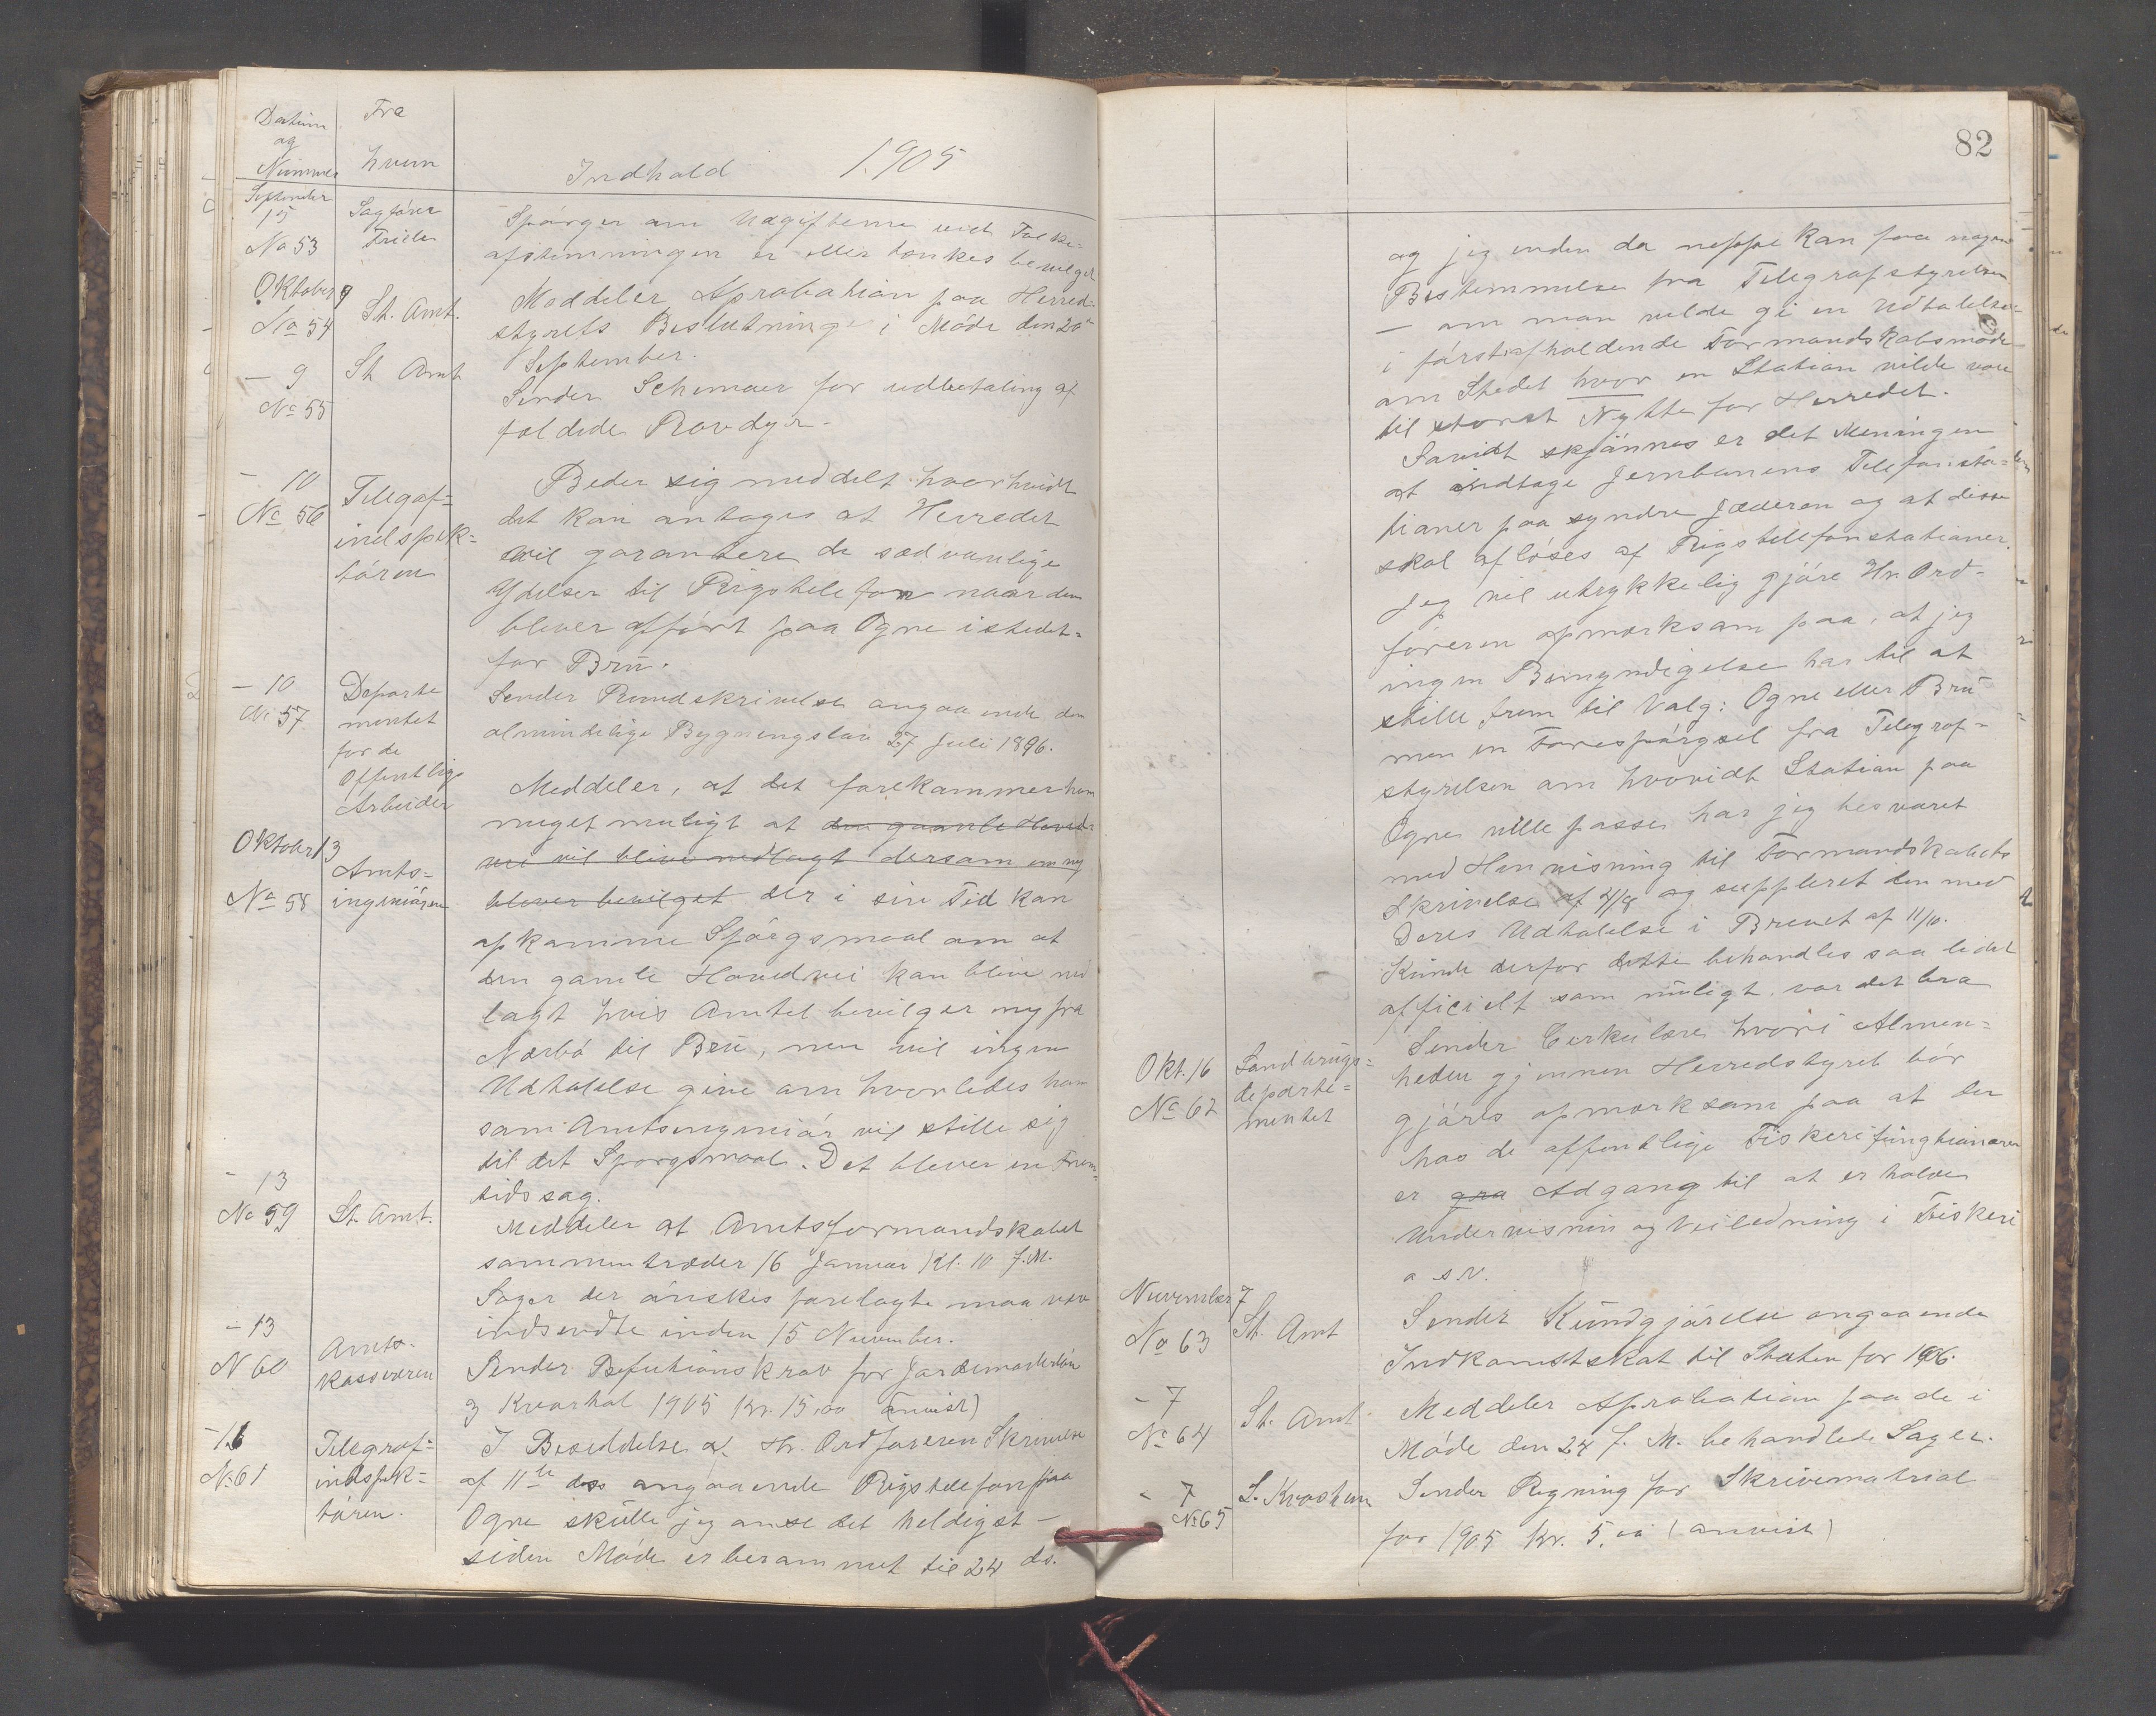 Datum
og
Nummer
Fra
hvem
Indhold 1905
September
15
No 53
Sagfører
Spørger om Udgifterne ved Folke-
afstemningen er eller tænkes bevilget
Oktober 9
No 54
St. Amt.
Meddeler Aprobation paa Herred-
styrets Beslutninger i Møde den 20de
September.
– 9
No 55
St Amt
Sender Schemaer for udbetaling af
fældede Rovdyr.
– 10
No 56
Telegaf-
indspek-
tøren
Beder sig meddelt hvorhvidt
det kan antages at Herredet
vil garantere de sædvanlige
Ydelser til Rigstelefon naar den
blever opført paa Ogne istedet-
for Brū.
– 10
No 57
Departe
mentet
for de
Offentlige
Arbeider
Sender Rundskrivelse angaaende den
almindelige Bygningslov 27 Juli 1896.
Oktober 13
No 58
Amts-
ingeniøren
Meddeler, at det forekommer ham
meget muligt at den gamle Hoved-
vei vil blive nedlagt dersom en ny
blever bevilget der i sin Tid kan
opkomme Spørgsmaal om at
den gamle Hovedvei kan blive ned
lagt hvis Amtet bevilger ny fra
Nærbø til Brū, men vil ingen
Udtalelse give om hvorledes han
som Amtsingeniør vil stille sig
til det Sporgsmaal. Det blever en Frem-
tids sag.
– 13
No 59
St. Amt.
Meddeler at Amtsformandskabet
sammentræder 16 Januar Kl. 10 f.M.
Sager der ønskes forelagte maa være
indsendte inden 15 November.
– 13
N 60
Amts-
kasseren
Sender Refutionskrav for Jordemoderløn
3 Kvartal 1905 Kr. 15,00 (anvist)
– 16
No 61
Telegraf-
indspek-
tøren.
I Besiddelse af Hr. Ordføreren Skrivelse
af 11te ds angaaende Rigstelefon paa
Ogne skūlle jeg anse det heldigst –
siden Møde er berammet til 24 ds.
82
og jeg inden da neppe kan faa nogen
Bestemmelse fra Telegrafstyrelsen
– om man vilde gi en Udtalelse
i førstafholdende Formandskabsmøde
om Stedet hvor en Station vilde være
til størst Nytte for Herredet.
Savidt skjønnes er det Meningen
at indtage Jernbanens Telefonsta-
tioner paa syndre Jæderen og at disse
skal afløses af Rigstelefonstationer.
Jeg vil utrykkelig gjøre Hr. Ord-
føreren opmærksom paa, at jeg
ingen Bemyndigelse har til at
stille frem til Valg: Ogne eller Brū
men en Forespørgsel fra Telegraf-
styrelsen om hvorvidt Station paa
Ogne ville passe har jeg besvaret
med Henvisning til Formandskabets
Skrivelse af 4/8 og suppleret den med
Deres Udtalelse i Brevet af 11/10.
Kūnde derfor dette behandles saa lidet
officielt som mūligt, var det bra
Okt. 16
No 62
Landbrūgs-
departe-
mentet
Sender Cerkulære hvori Almen-
heden gjennem Herredstyret bør
gjøres opmærksom paa at der
hos de offentlige Fiskerifūngtionærer
er gra Adgang til at erholde
Undervisnin og Veiledning i Fiskeri
o s v.
November 7
No 63
St. Amt
Sender Kūndgjørelse angaaende
Indkomstskat til Staten for 1906.
– 7
No 64
St. Amt
Meddeler Aprobation paa de i
Møde den 24 f. M. behandlede Sager.
– 7
No 65
Sender Regning for Skrivematrial
for 1905 Kr. 5,00 (anvist)